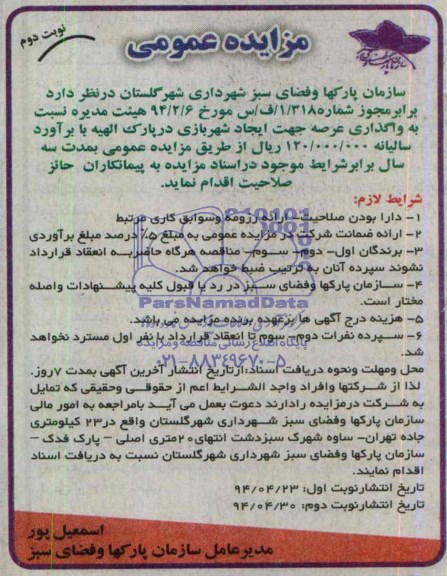 نوبت دوم
مزایده عمومی
سازمان پارکها وفضای سبز شهرداری شهرگلستان درنظر دارد
برابرمجوز شماره۱/۳۱۸/ف/س مورخ ۹۴/۲/۶ هیئت مدیره نسبت
به واگذاری عرصه جهت ایجاد شهربازی درپارک الهیه با برآورد
سالیانه ۱۲۰/۰۰۰/۰۰۰ ریال از طریق مزایده عمومی بمدت سه
سال برابرشرایط موجود دراسناد مزایده به پیمانکاران حائز
صلاحیت اقدام نماید.
شرایط لازم:
۱- دارا بودن صلاحیت- ارائه رزومه وسوابق کاری مرتبط
۲- ارائه ضمانت شرکت در مزایده عمومی به مبلغ ۵٪ درصد مبلغ برآوردی
۳- برندگان اول- دوم- سوم- مناقصه هرگاه حاضربه انعقاد قرارداد
نشوند سپرده آنان به ترتیب ضبط خواهد شد.
۴- سازمان پارکها وفضای سبز در رد یا قبول کلیه پیشنهادات واصله
مختار است.
ParsNamadData
۵- هزینه درج آگهی ها برعهده برنده مزایده می باشد.
پایگاه اطلاع رسانی مناقصه و مزایده
۶- سپرده نفرات دوم- سوم تا انعقاد قرارداد با نفر اول مسترد نخواهد
شد.
۰۲۱-۸۸۳۴۹۶۷۰-۵
محل ومهلت ونحوه دریافت اسناد:ازتاریخ انتشار آخرین آگهی بمدت ۷روز.
لذا از شرکتها وافراد واجد الشرایط اعم از حقوقی وحقیقی که تمایل
به شرکت درمزایده رادارند دعوت بعمل می آید بامراجعه به امور مالی
سازمان پارکها وفضای سبز شهرداری شهرگلستان واقع در۲۳ کیلومتری
جاده تهران- ساوه شهرک سبزدشت انتهای۲۰متری اصلی - پارک فدک -
سازمان پارکها وفضای سبز شهرداری شهرگلستان نسبت به دریافت اسناد
اقدام نمایند.
تاریخ انتشارنوبت اول: ۹۴/۰۴/۲۳
تاریخ انتشارنوبت دوم: ۹۴/۰۴/۳۰
اسمعیل پور
مدیرعامل سازمان پارکها وفضای سبز